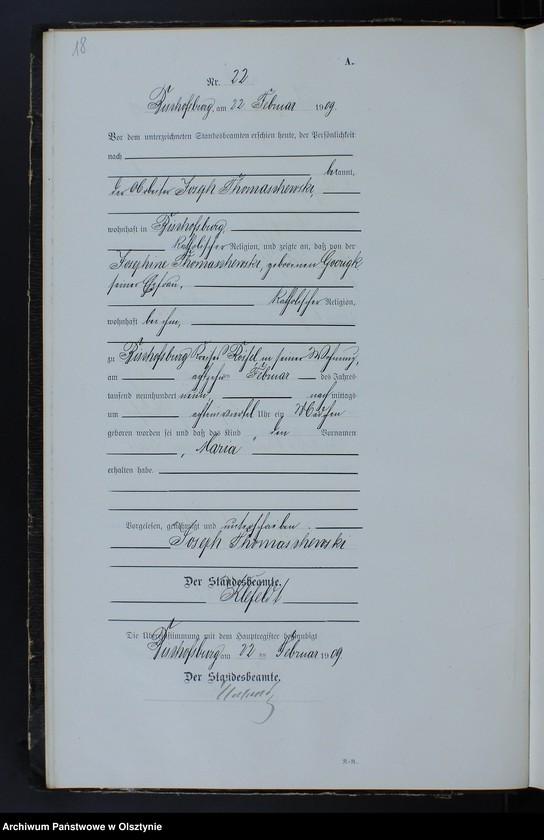 18
A.
Nr. 22
Bischofsburg, am 22 Februar 1909.
Vor dem unterzeichneten Standesbeamten erschien heute, der Persönlichkeit
nach
bekannt,
der Arbeiter Joseph Thomaschewski,
wohnhaft in Bischofsburg,
katholischer Religion, und zeigte an, daß von der
Josephine Thomaschewski, geborenen
seiner Ehefrau,
katholischer Religion,
wohnhaft bei ihm,
zu Bischofsburg Kreises Rössel in seiner Wohnung,
am achtzehn Februar des Jahres
tausend neunhundert neun, nachmittags
um viertel Uhr ein Mädchen
geboren worden sei und daß das Kind den Vornamen
Maria
erhalten habe.
Vorgelesen, genehmigt und unterschrieben.
Joseph Thomaschewski
Der Standesbeamte.
Klefeldt
Die Übereinstimmung mit dem Hauptregister beglaubigt
Bischofsburg am 22 ten Februar 1909.
Der Standesbeamte.
R.-R.
Archiwum Państwowe w Olsztynie